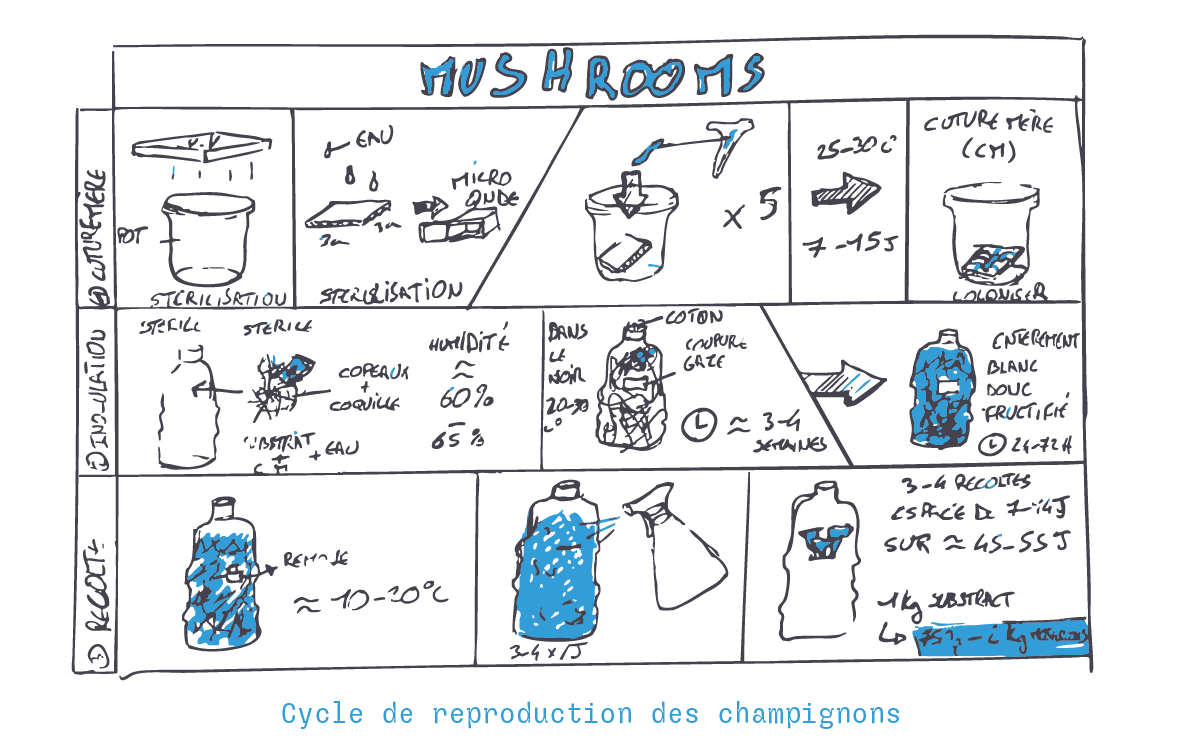 MUSHROOMS
CUTURE MÈRE
POT
STERILISATION
EAU
MICRO
ONDE
STERILISATION
x 5
25-30 C°
7 - 15 J
CUTURE MÈRE
(CM)
COLONISER
STERILE
STERILE
COPEAUX
+
COQUILLE
SUBSTRAT
+
CM
+ EAU
HUMIDITÉ
≈
60%
-
65%
DANS
LE
NOIR
20-30
C°
COTON
COUPURE
GAZE
≈ 3-4
SEMAINES
ENTEREMENT
BLANC
DONC
FRUCTIFIÉ
24-72H
RECOLTE
≈ 10-20°C
3-4 x 1J
3-4 RECOLTES
ESPACÉ DE 7-14J
SUR ≈ 45-55J
1 Kg SUBSTRACT
Kg
Cycle de reproduction des champignons